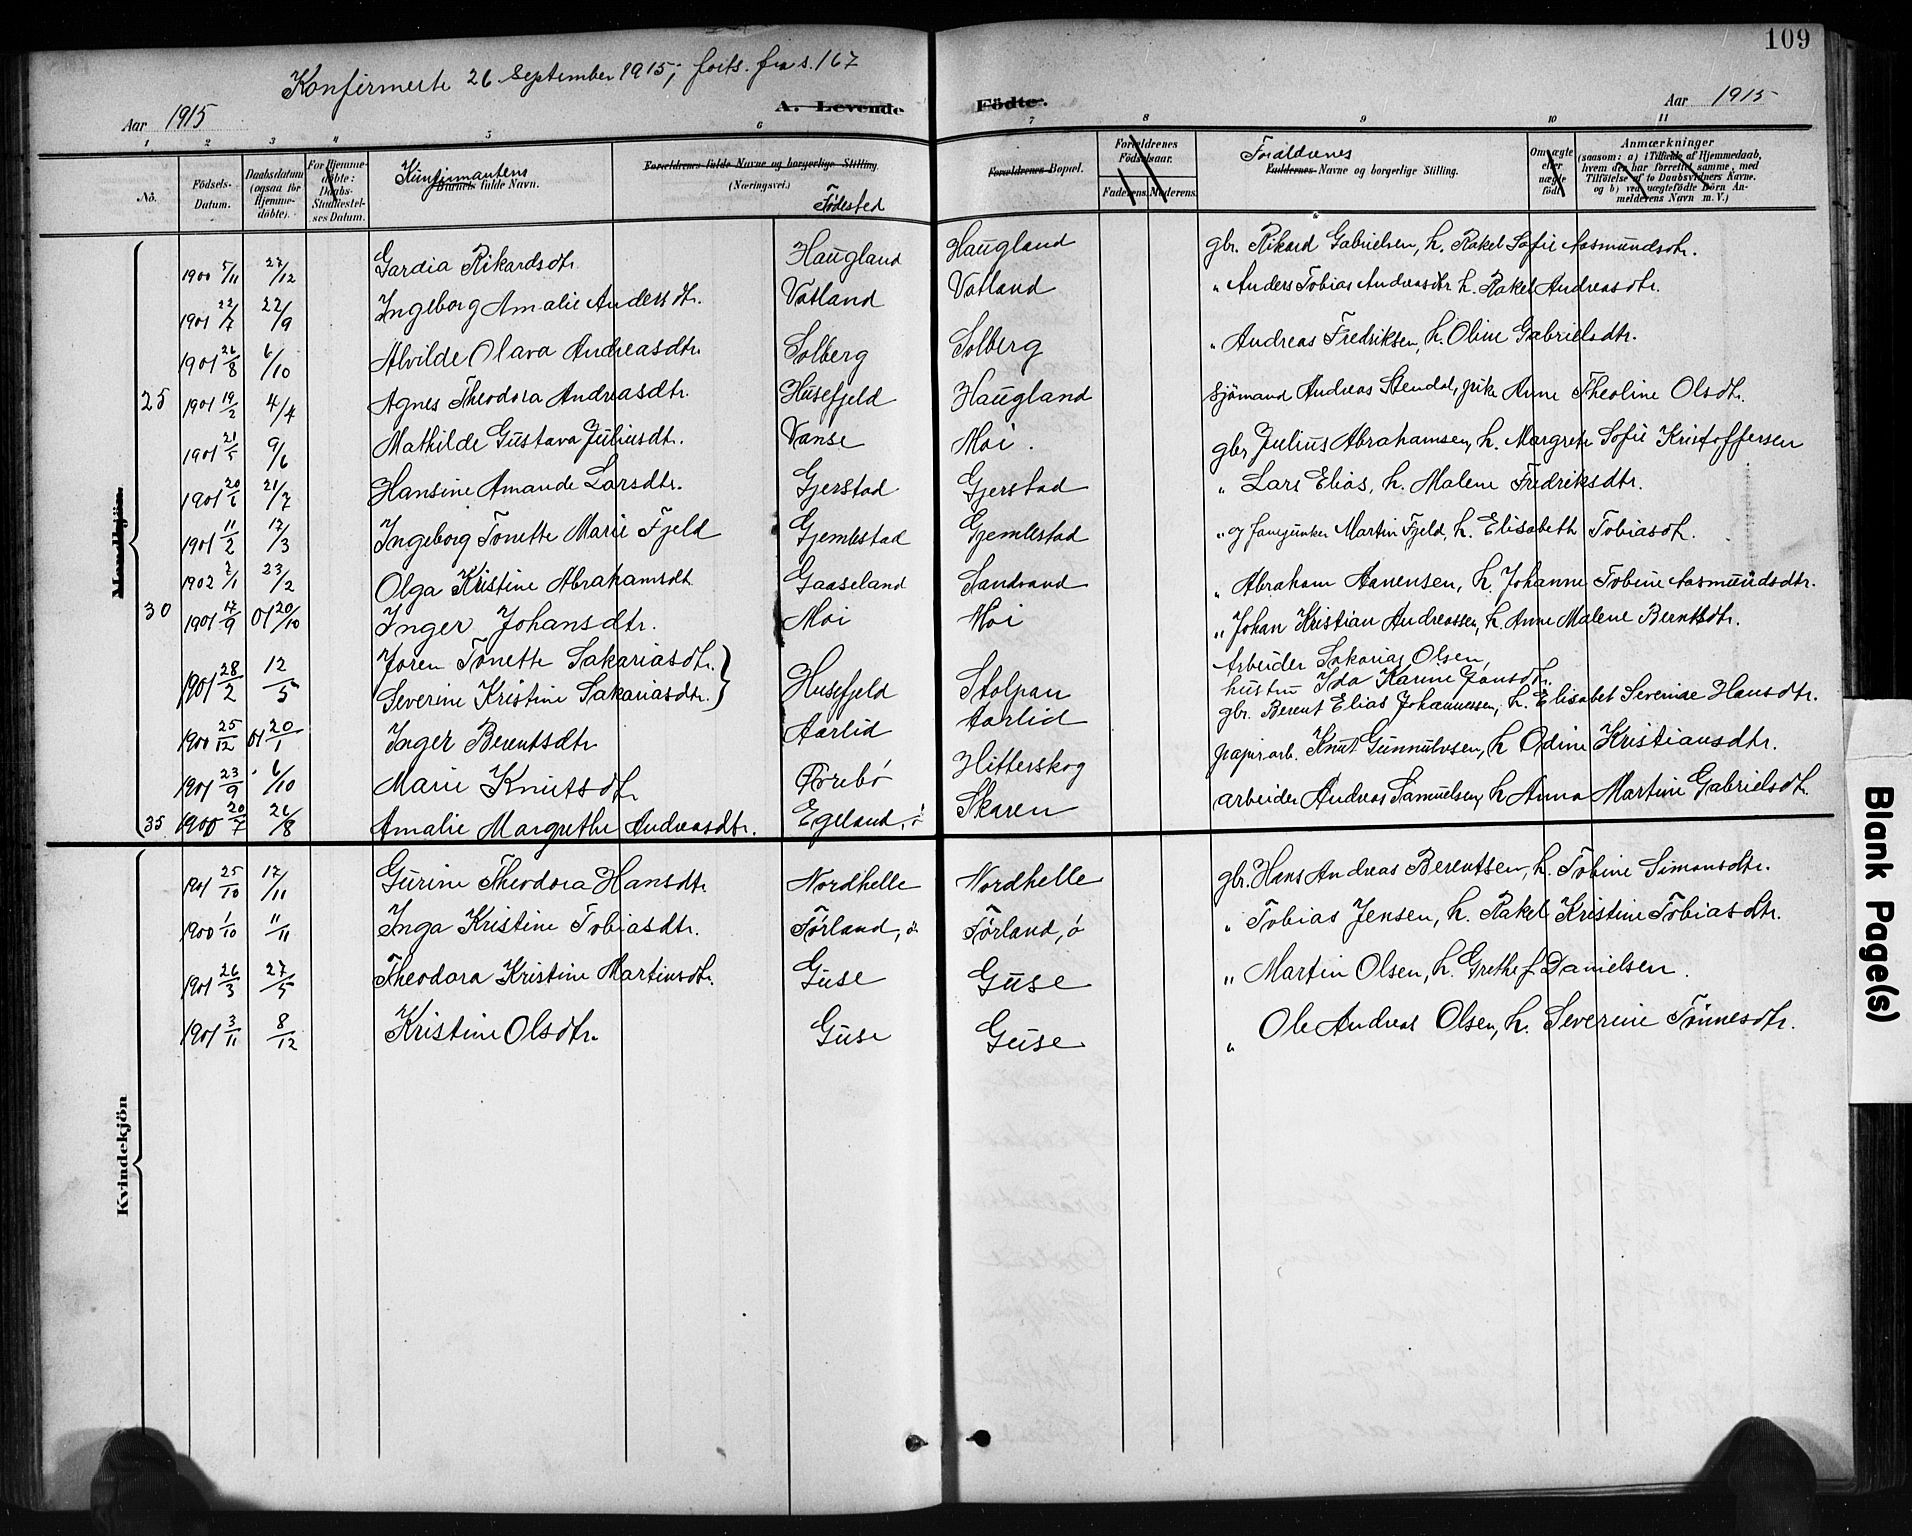 109
Konfirmerte 26 September 1915, forts. fra s. 167
Aar 1915 A. Levende Födte. Aar 1915
1 2 3 4 5 6 7 8 9 10 11
No. Födsels-Datum. Daabsdatum (ogsaa for Hjemmedöbte). For Hjemmedöbte: Daabs-Stadfæstelses Datum. Konfirmantens Barnets fulde Navn. Forældrenes fulde Navne og borgerlige Stilling (Næringsvei.) Fødested Forældrenes Bopæl. Forældrenes Födselsaar. Faderens. Moderens. Forældrenes Faddernes Navne og borgerlige Stilling. Om ægte eller uægte födt. Anmærkninger (saasom: a) i Tilfælde af Hjemmedaab, hvem der har forrettet samme, med Tilföielse af to Daabsvidners Navne, og b) ved uægtefödte Börn Anmelderens Navn m. V.)
Mandkjön.
1900 5/11 27/12 Gardia Rikardsdtr. Haugland Haugland gbr. Rikard Gabrielsen, h. Rakel Sofie Aasmundsdtr.
1901 22/7 22/9 Ingeborg Amalie Andersdtr. Vatland Vatland " Anders Tobias Andreasdtr h. Rakel Andreasdtr.
1901 26/8 6/10 Alvilde Olava Andreasdtr. Solberg Solberg " Andreas Fredriksen, h. Oline Gabrielsdtr.
25 1901 19/2 4/4 Agnes Theodora Andreasdtr. Husefjeld Haugland sjømand Andreas Stendal, pike Anne Theoline Olsdtr.
1901 21/5 9/6 Mathilde Gustava Juliusdtr. Vanse Moi. gbr Julius Abrahamsen, h. Margrete Sofie Kristoffersen
1901 20/6 21/7 Hansine Amande Larsdtr. Gjerstad Gjerstad " Lars Elias, h. Malene Fredriksdtr.
1901 11/2 17/3 Ingeborg Tonette Marie Fjeld Gjemlestad Gjemlestad " og fanejunker Martin Fjeld, h. Elisabeth Tobiasdtr.
1902 2/1 23/2 Olga Kristine Abrahamsdtr Gaaseland Sandvand " Abraham Aanensen, h. Johanne Tobine Aasmundsdtr.
30 1901 17/9 01 20/10 Inger Johansdtr. Moi Moi " Johan Kristian Andreassen, h. Anne Malene Berntsdtr.
1901 28/2 12/5 Joren Tonette Sakariasdtr. } Arbeider Sakarias Olsen,
Severine Kristine Sakariasdtr. } Husefjeld Stolpan hustru Ida Karine Jonsdtr.
1900 25/12 01 20/1 Inger Berentsdtr Aarlid Aarlid gbr. Berent Elias Johannessen, h. Elisabet Severine Hansdtr.
1901 23/9 6/10 Marie Knutsdtr Ørrebø Hitterskog papirarb. Knut Gunnulvsen, h Odine Kristiansdtr.
35 1900 20/7 26/8 Amalie Margrethe Andreasdtr. Egeland, i Skaren arbeider Andreas Samuelsen, h Anna Martine Gabrielsdtr.
Kvindekjön
1901 25/10 17/11 Gurine Theodora Hansdtr Nordhelle Nordhelle gbr. Hans Andreas Berentsen, h. Tobine Simonsdtr.
1900 1/10 11/11 Inga Kristine Tobiasdtr. Førland, ø Førland, ø " Tobias Jensen, h. Rakel Kristine Tobiasdtr.
1901 26/3 27/5 Theodora Kristine Martinsdtr. Guse Guse " Martin Olsen, h. Grethe f Danielsen.
1901 3/11 8/12 Kristine Olsdtr. Guse Guse " Ole Andreas Olsen, h. Severine Tønnesdtr.
Blank Page(s)